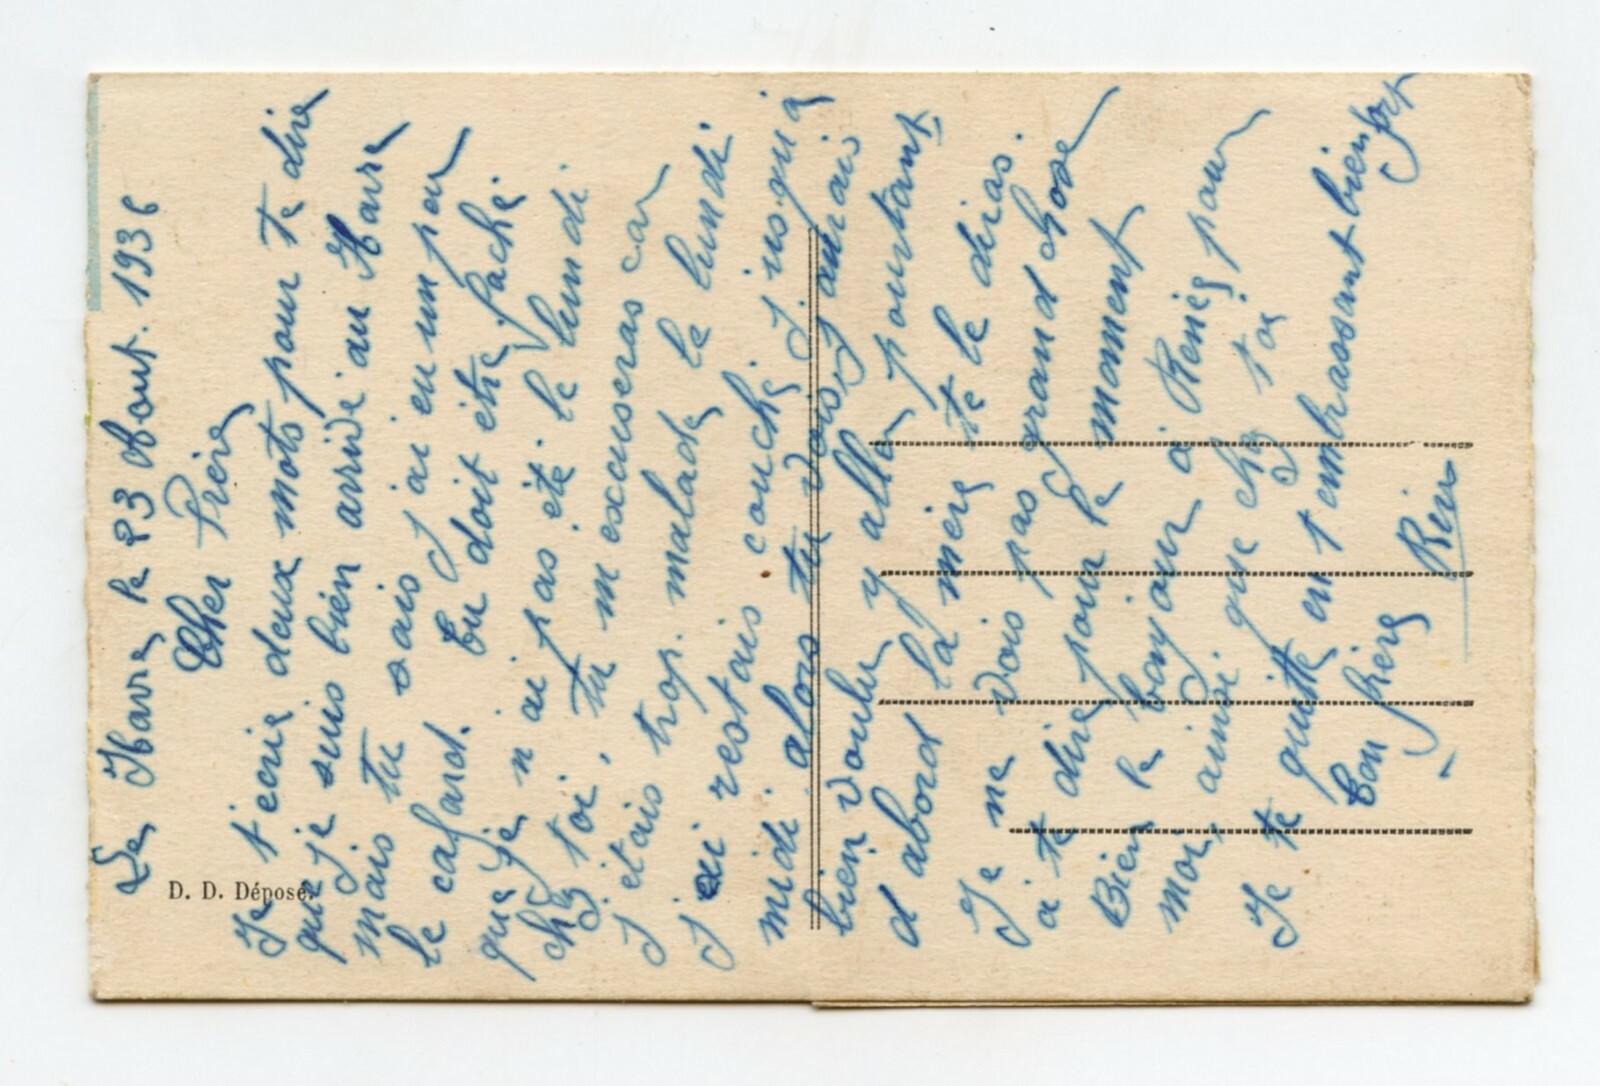 Le Havre le 23 Aout. 1936
Cher Frère
Je t'ecrie deux mots pour te dire
que je suis bien arrivé au Havre
mais tu sais j ai eu un peu
le cafard. Tu doit être faché
que je n ai pas été le lundi
chez toi, tu m excuseras car
j etais trop malade le lundi
j ai restais couché j usqu à
midi alors tu vois, j aurais
bien voulu y aller pourtant
d abord la mère te le diras.
Je ne vois pas grand chose
à te dire pour le moment
Bien le bonjour à Renée pour
moi, ainsi que chez toi
Je te quitte en t embrassant bien fort
Ton frère
D. D. Déposé.